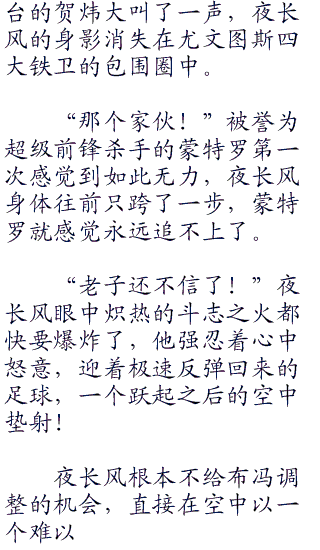 台的贺炜大叫了一声，夜长
风的身影消失在尤文图斯四
大铁卫的包围圈中。
“那个家伙！”被誉为
超级前锋杀手的蒙特罗第一
次感觉到如此无力，夜长风
身体往前只跨了一步，蒙特
罗就感觉永远追不上了。
“老子还不信了！”夜
长风眼中炽热的斗志之火都
快要爆炸了，他强忍着心中
怒意，迎着极速反弹回来的
足球，一个跃起之后的空中
垫射！
夜长风根本不给布冯调
整的机会，直接在空中以一
个难以